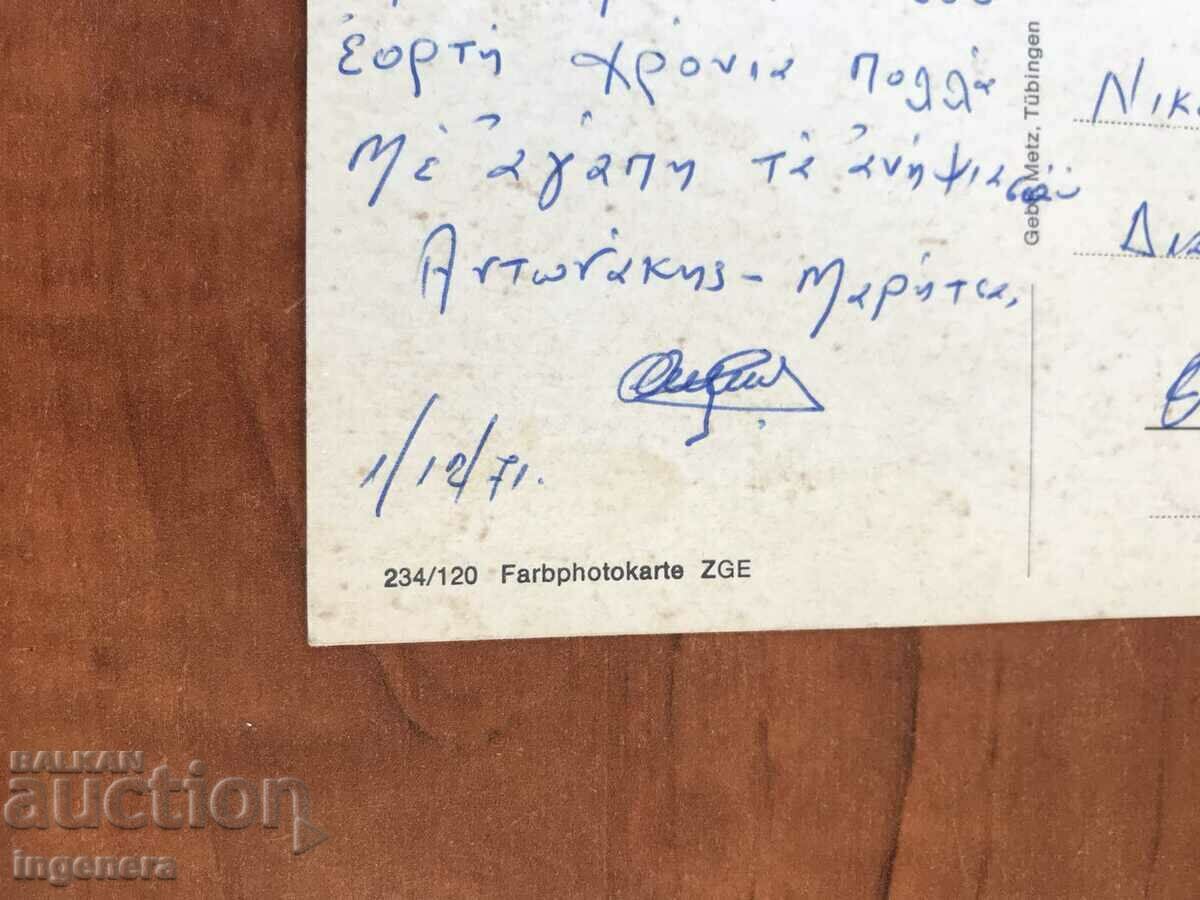 ἑορτή χρόνια πολλά
Μέ ἀγάπη τά ἀνήψια σου
Ἀντωνάκης - Μαρήτσα,
1/12/71.
234/120 Farbphotokarte ZGE
Gebr. Metz, Tübingen
Νικ
Δια
BALKAN
auction
ingenera